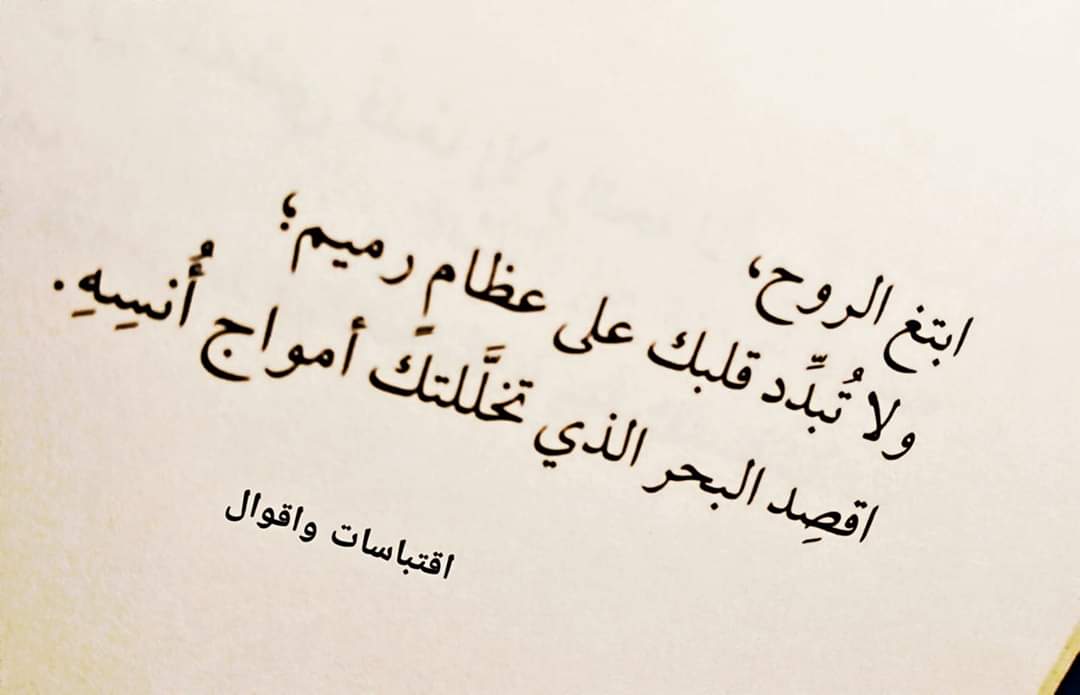 ابتغ الروح،
ولا تُبدِّد قلبك على عظامٍ رميم؛
اقصِد البحر الذي تخلَّلتكَ أمواج أُنسِهِ.
اقتباسات واقوال